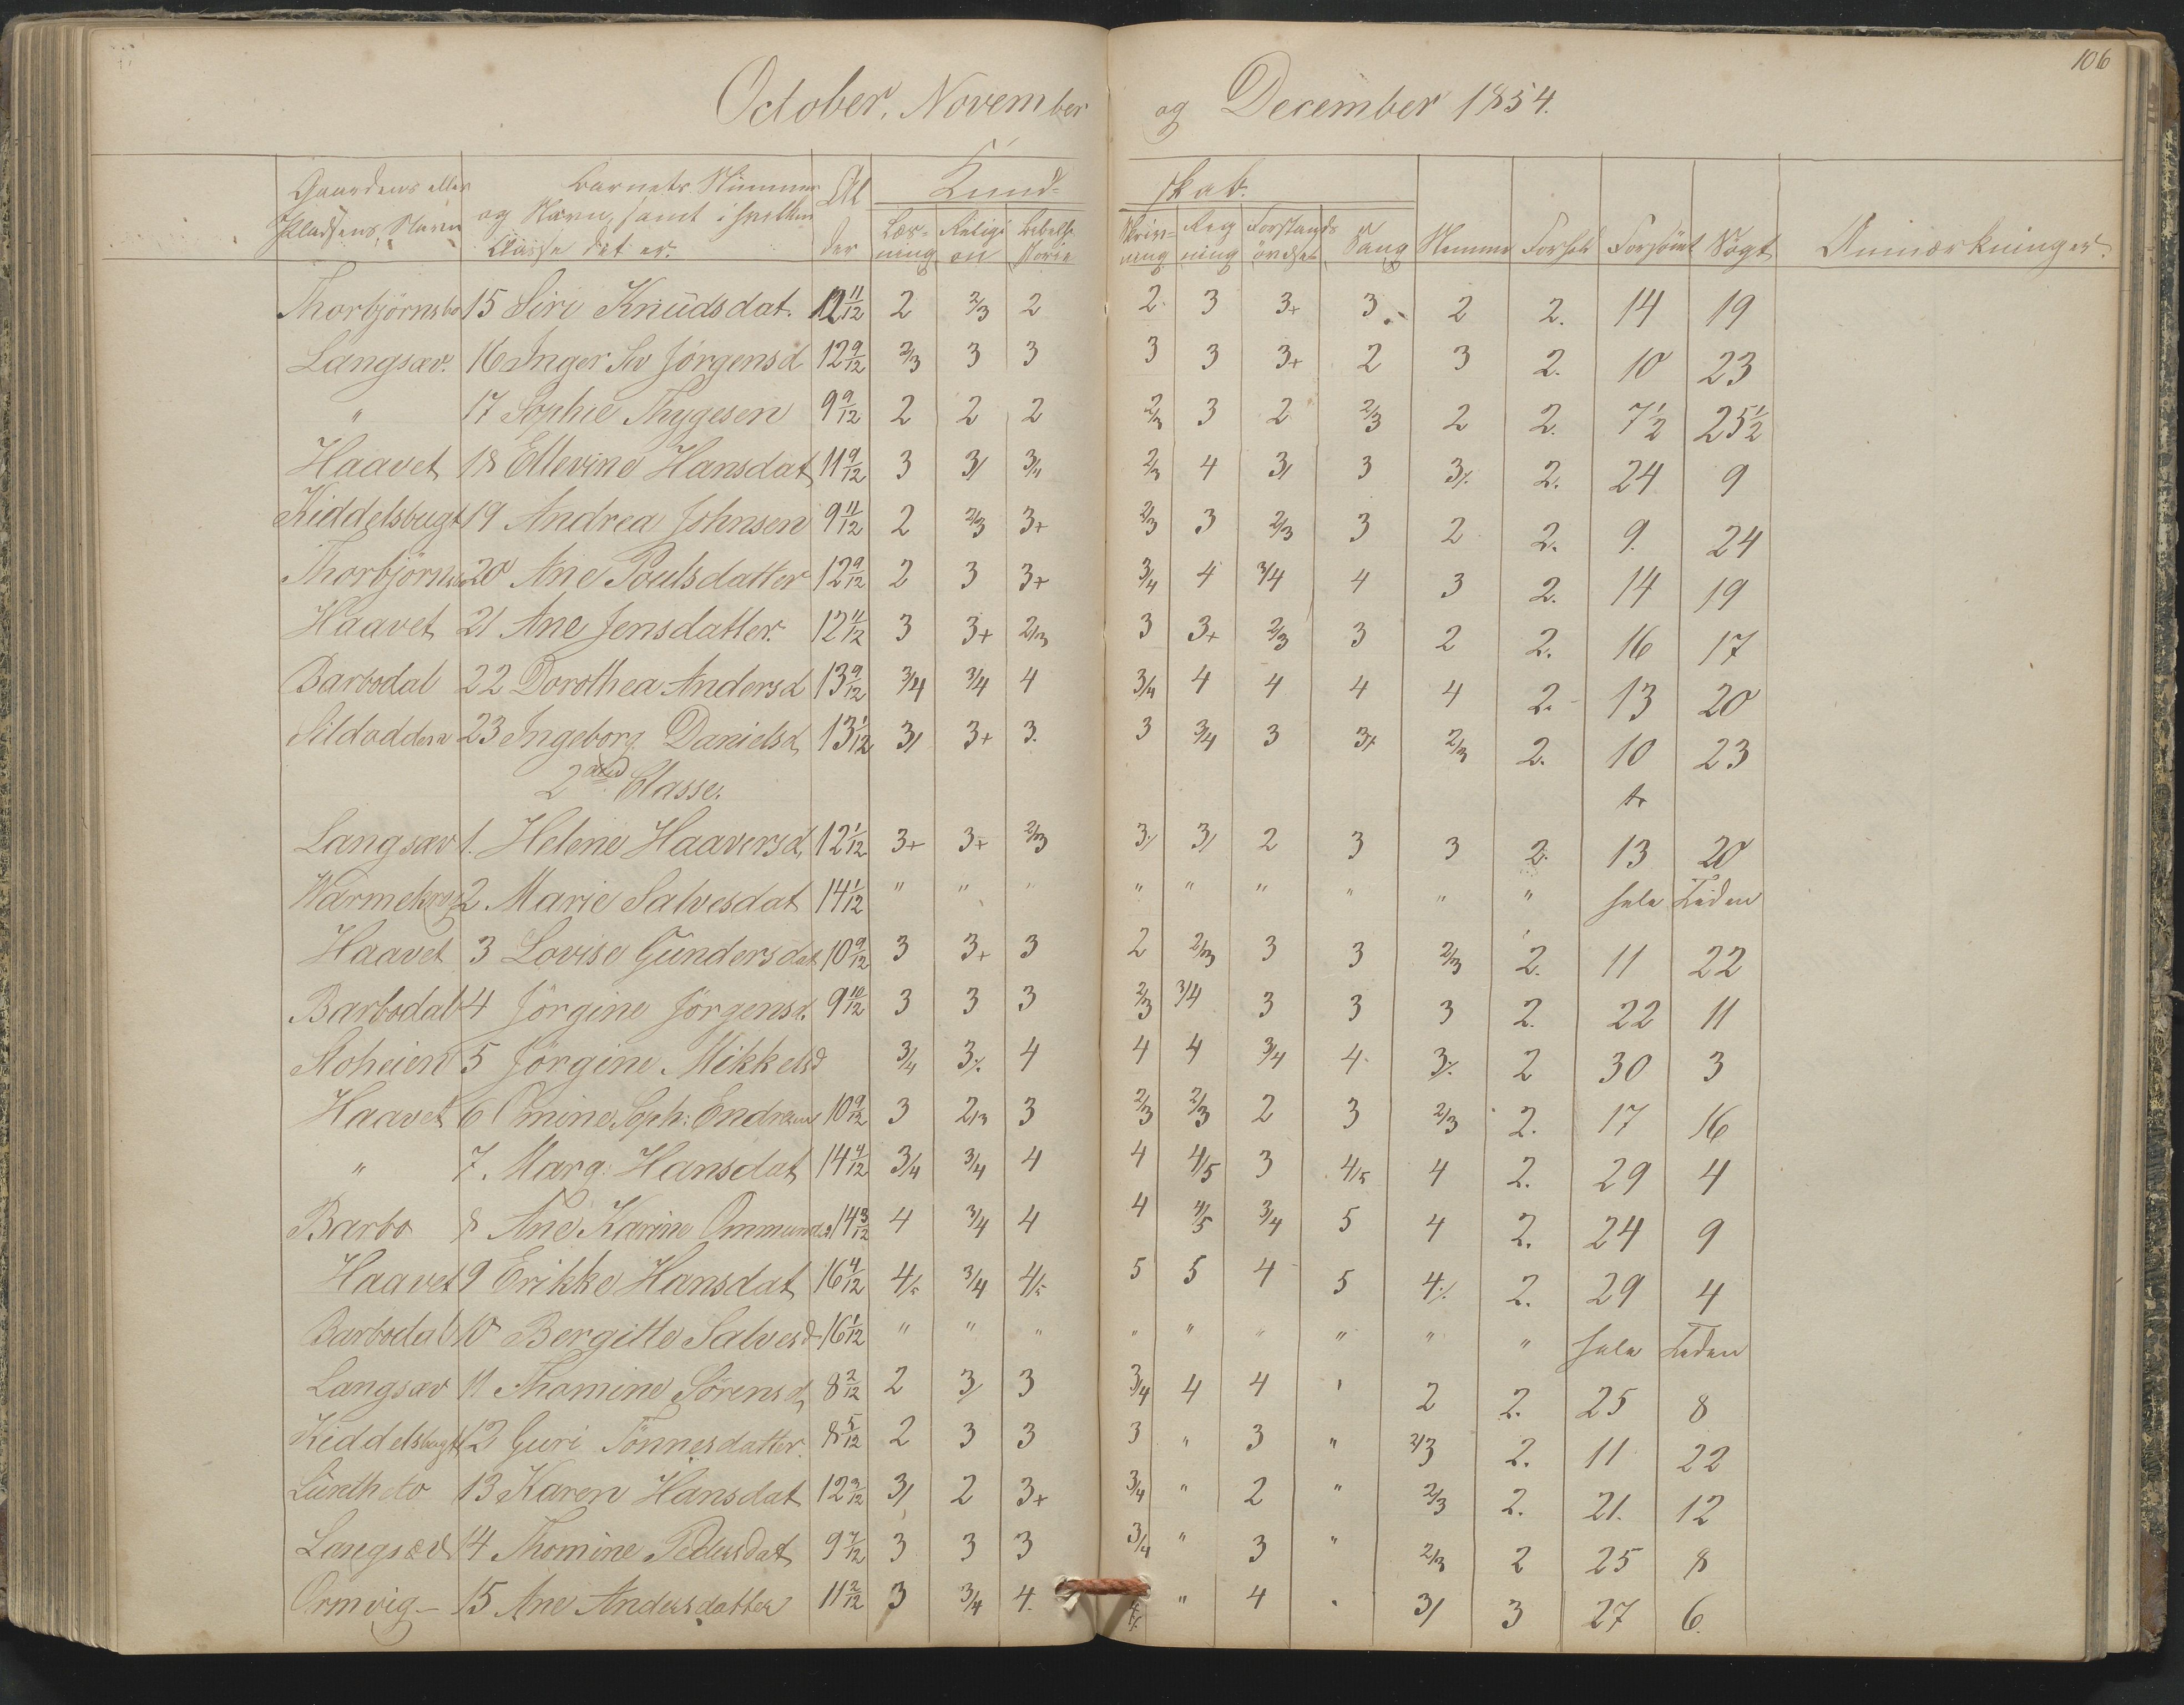 106
October, November og December 1854.
Gaardens eller Pladsens Navn | Barnets Nummer og Navn, samt i hvilken Classe det er. | Alder | Kundskab. | Nemme | Forhold | Forsömt | Sögt | Anmærkninger.
Læsning | Religion | Bibelhistorie | Skrivning | Regning | Forstandsövelse | Sang
Thorbjörnsbo 15 Siri Knudsdat. 12 11/12 2 2/3 2 2 3 3+ 3 2 2. 14 19
Langsæv. 16 Inger Jörgensd 12 9/12 2/3 3 3 3 3 3+ 2 3 2. 10 23
" 17 Sophie Thygesen 9 9/12 2 2 2 2/3 3 2 2/3 2 2. 7 1/2 25 1/2
Haavet 18 Ellevine Hansdat 11 9/12 3 3/ 3/ 2/3 4 3/ 3 3/. 2. 24 9
Kiddelsbugt 19 Andrea Johnsen 9 11/12 2 2/3 3+ 2/3 3 2/3 3 2 2. 9. 24
Thorbjörnsbo 20 Ane Poulsdatter 12 9/12 2 3 3+ 3/4 4 3/4 4 3 2. 14 19
Haavet 21 Ane Jensdatter. 12 11/12 3 3+ 2/3 3 3+ 2/3 3 2 2. 16 17
Barbodal 22 Dorothea Andersd 13 9/12 3/4 3/4 4 3/4 4 4 4 4 2. 13 20
Sildodden 23 Ingeborg Danielsd 13 1/12 3/ 3+ 3. 3 3/4 3 3+ 2/3 2. 10 23
2 Classe.
Langsæv 1. Helene Haaversd. 12 1/12 3+ 3+ 2/3 3/ 3/ 2 3 3 2. 13 20
2 Marie Salvesdat 14 1/12 " " " " " " " " " hele Tiden
Haavet 3 Lovise Gundersdat 10 9/12 3 3+ 3 2 2/3 3 3 2/3 2. 11 22
Barbodal 4 Jörgine Jörgensd. 9 10/12 3 3 3 2/3 3/4 3 3 3 2. 22 11
Stoheien 5 Jörgine Mikkelsd 3/4 3/. 4 4 4 3/4 4 3/. 2 30 3
Haavet 6 Omine Soph: 10 9/12 3 2/3 3 2/3 2/3 2 3 2/3 2. 17 16
" 7. Marg. Hansdat 14 4/12 3/4 3/4 4 4 4/5 3 4/5 4 2. 29 4
Barbo 8 Ane Karine Ommundsd 14 3/12 4 3/4 4 4 4/5 3/4 5 4 2. 24 9
Haavet 9 Erikke Hansdat 16 4/12 4/5 3/4 4/5 5 5 4 5 4/. 2. 29 4
Barbodal 10 Bergitte Salvesd 16 1/12 " " " " " " " " " hele Tiden
Langsæv 11 Thomine Sörensd 8 2/12 2 3/ 3 3/4 4 4 ' 2 2. 25 8
Kiddelsbugt 12 Guri Tönnesdatter. 8 5/12 2 3 3 3 " 3 " 2/3 2. 11 22
13 Karen Hansdat 12 3/12 3/ 2 3+ 3/4 " 2 " 2/3 2. 21. 12
Langsæv 14 Thomine Pedersdat 9 7/12 3 3 3 3/4 " 3 " 2/3 2 25 8
Ormvig 15 Ane Andersdatter 11 2/12 3 3/4 4. " 4 " 3/ 3 27 6.